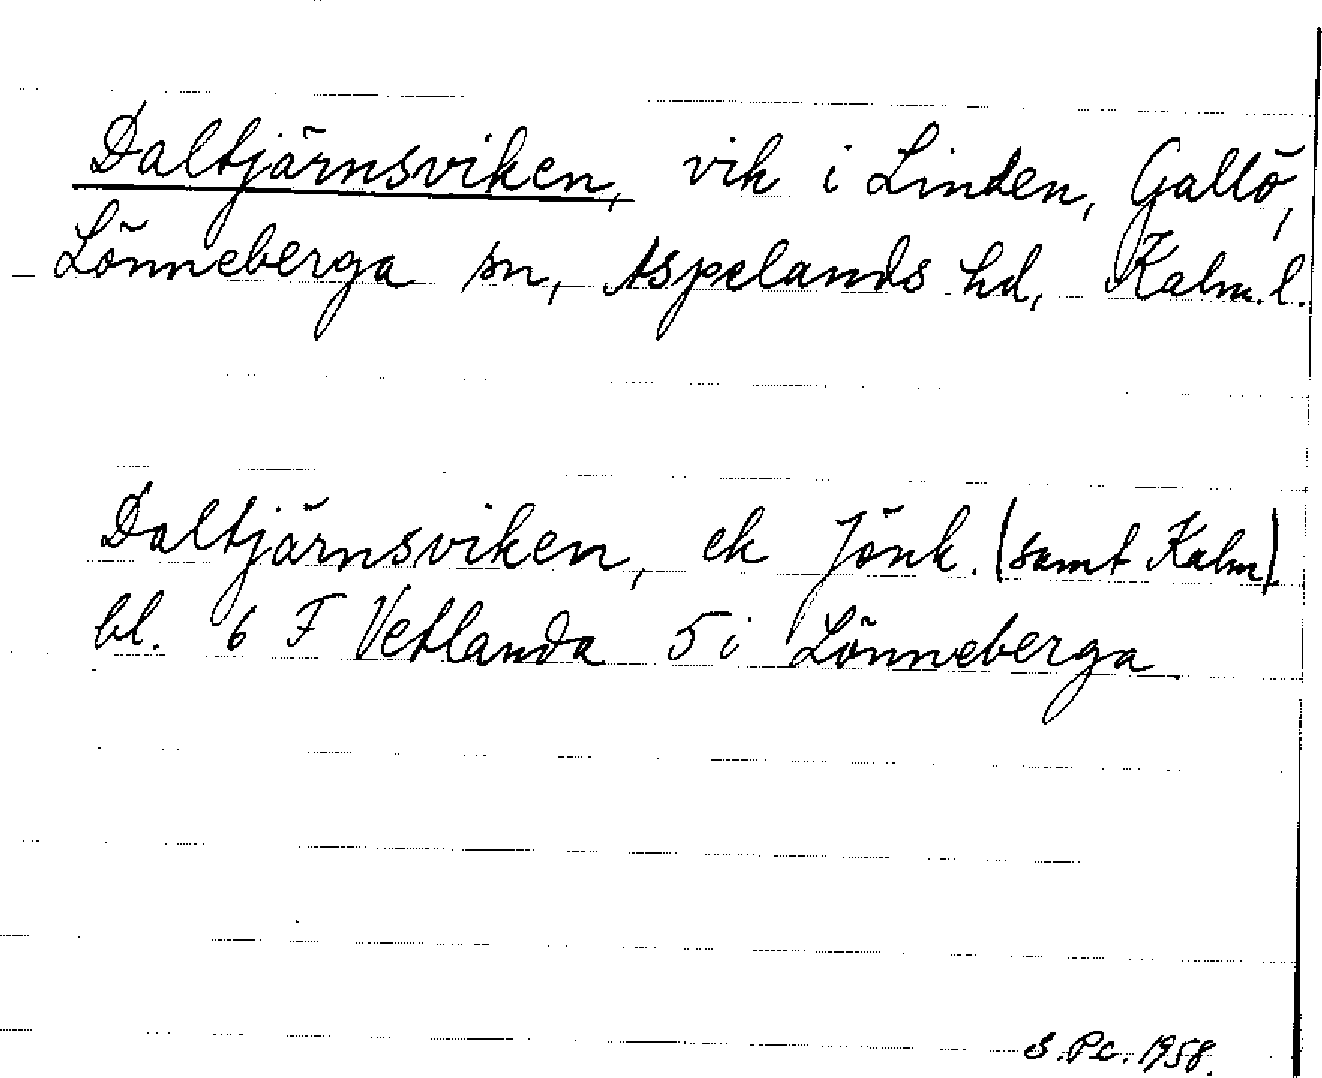 Daltjärnsviken, vik i Linden, Gallö,
Lönneberga sn, Aspelands hd, Kalm. l.
Daltjärnsviken, ek Jönk. (samt Kalm)
bl. 6 F Vetlanda 5 i Lönneberga
S. Pc. 1958.